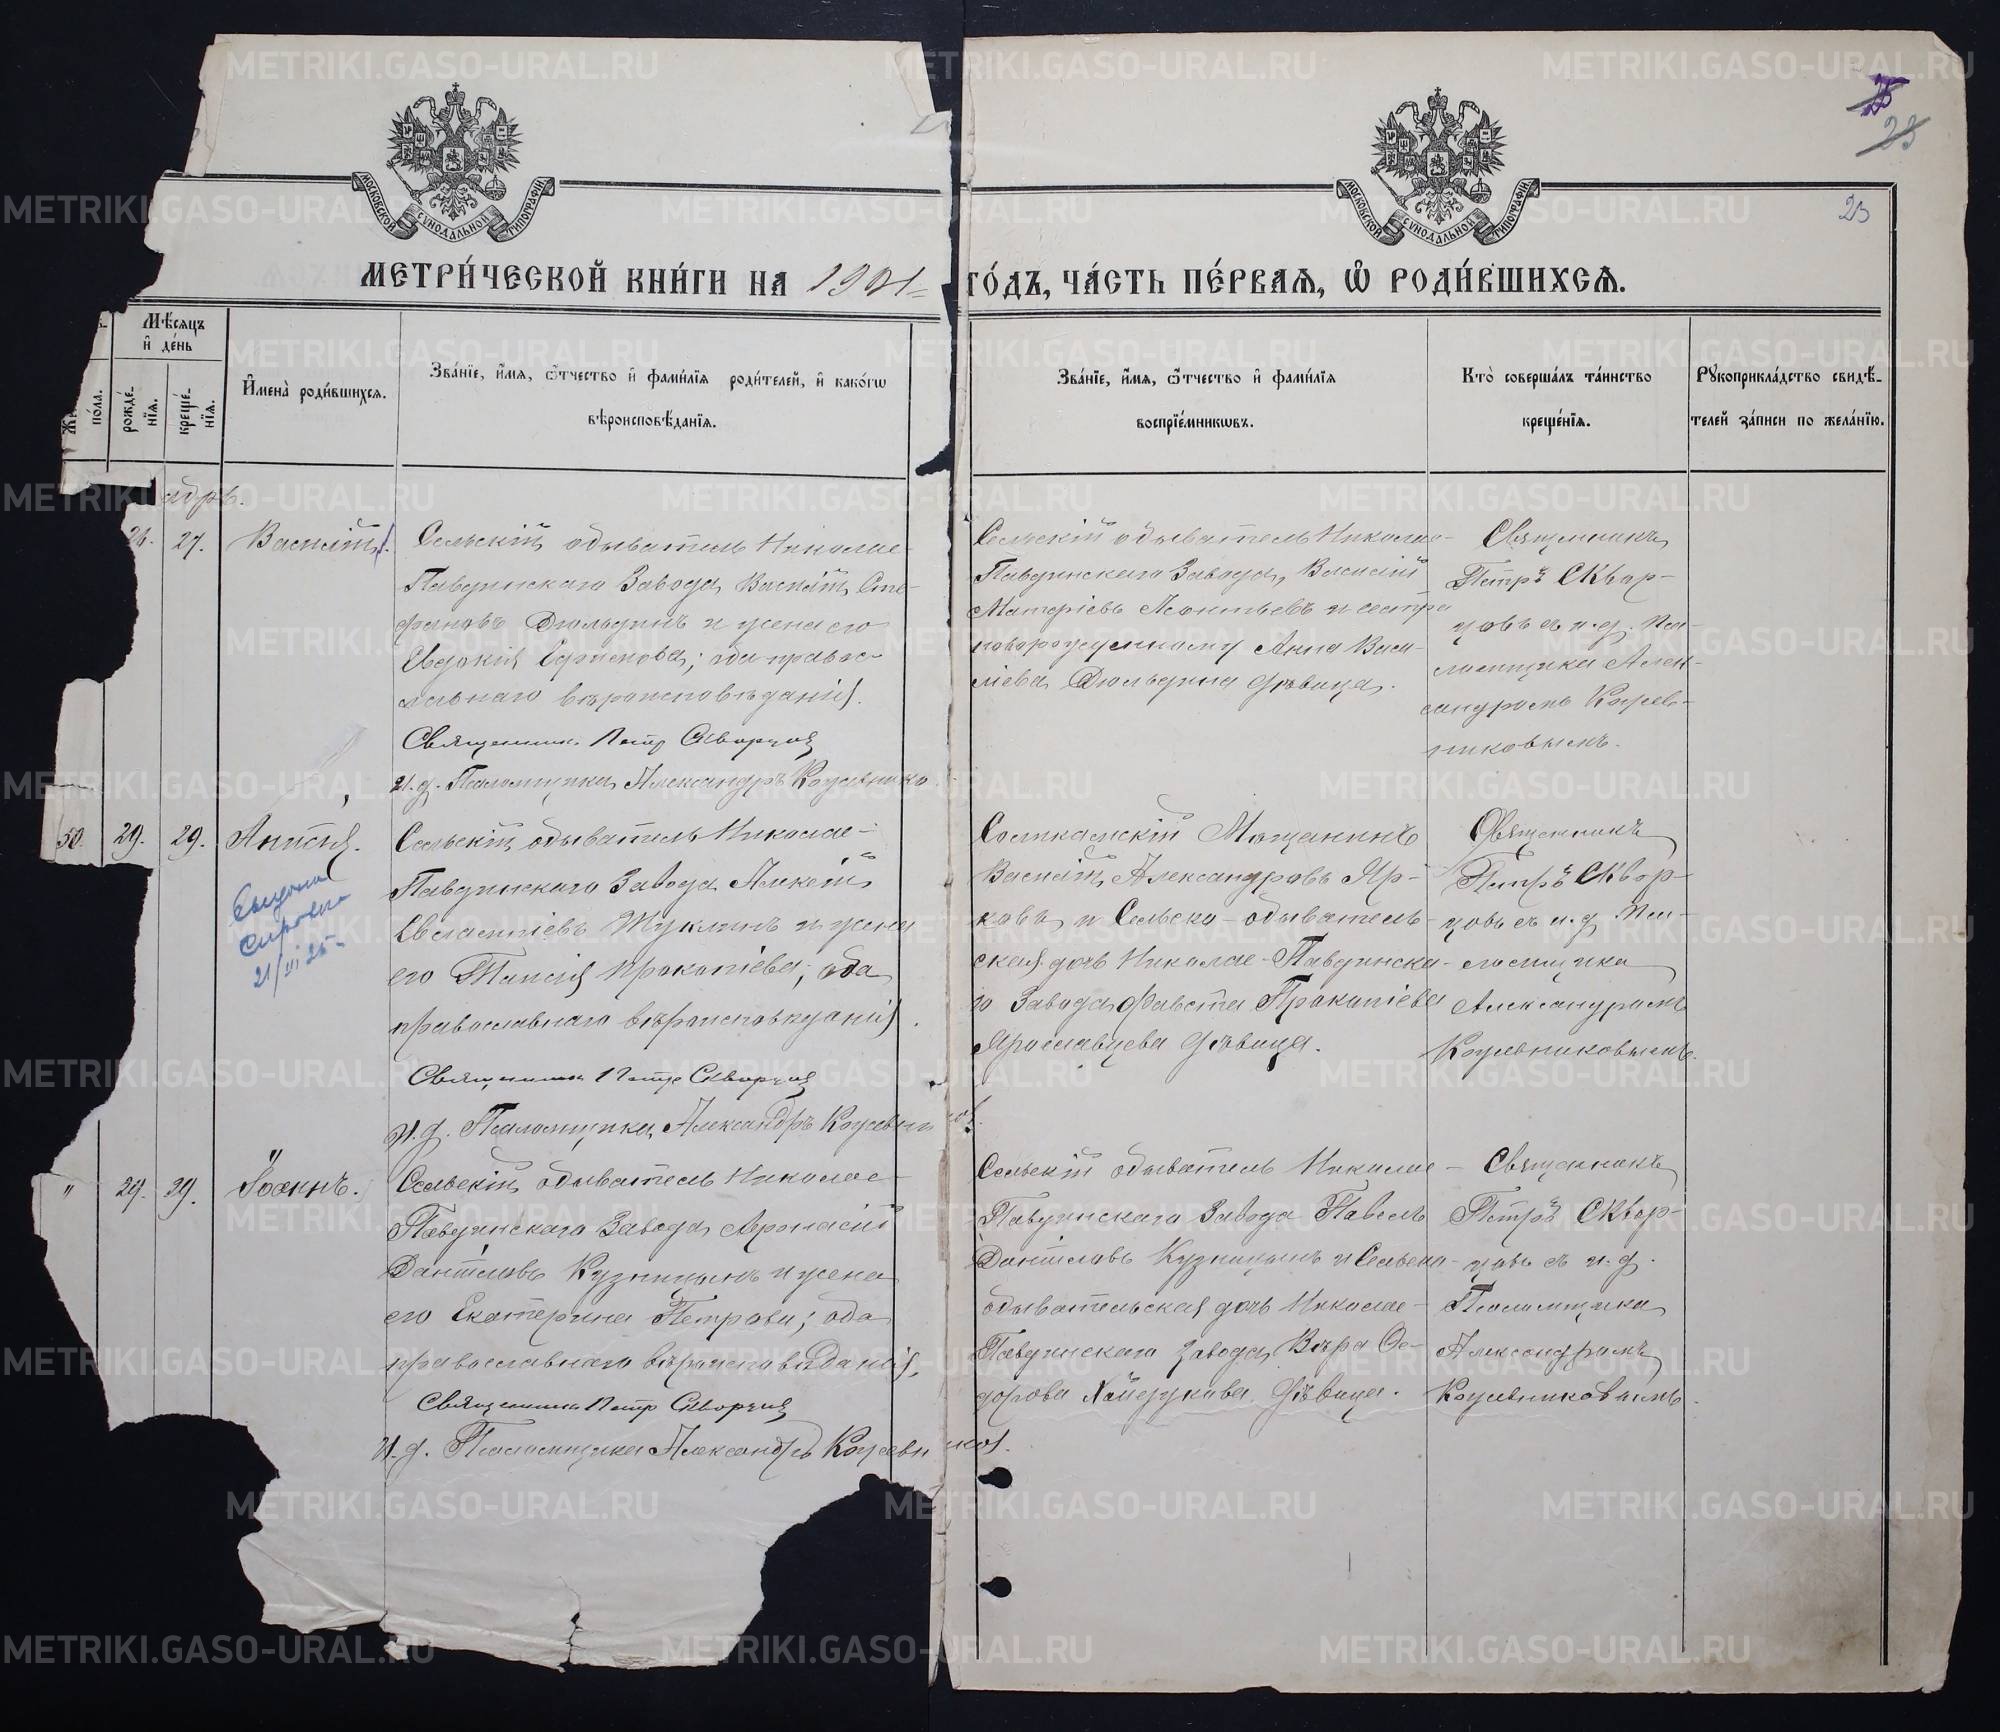 МОСКОВСКОЙ СУНОДАЛЬНОЙ ТИПОГРАФІИ
МОСКОВСКОЙ СУНОДАЛЬНОЙ ТИПОГРАФІИ
23
23
МЕТРИ́ЧЕСКОЙ КНИ́ГИ НА 1901 ГО́ДЪ, ЧА́СТЬ ПЕ́РВАѦ, Ѡ РОДИ́ВШИХСѦ.
Мѣсѧцъ
и де́нь
по́ла.
рожде́-
нїѧ.
креще́-
нїѧ.
Имена̀ роди́вшихсѧ.
Зва́нїе, и́мѧ, ѻ́тчество и фами́лїѧ роди́телей, и како́гѡ
вѣроисповѣ́данїѧ.
Зва́нїе, и́мѧ, ѻ́тчество и фами́лїѧ
воспрїе́мникѡвъ.
Кто̀ соверша́лъ та́инство
креще́нїѧ.
Рꙋкоприкла́дство свидѣ́-
телей за́писи по жела́нїю.
абрь.
26. 27. Василій.
Сельскій обыватель Николае-
Павдинскаго Завода, Василій Сте-
фановъ Дюльдинъ и жена его
Евдокія; оба правос-
лавнаго вѣроисповѣданія.
Священник Петр Скворцов
И. д. Псаломщика Александръ Кожевнико
Сельскій обыватель Николае-
Павдинскаго Завода, Василій
Матѳіевъ Леонтьевъ и сестра
новорожденному Анна Васи-
ліева Дюльдина дѣвица.
Священникъ
Петръ Сквор-
цовъ съ и. д. Пса-
ломщика Алек-
сандромъ Кожев-
никовымъ.
50. 29. 29. Анисія.
21/VI 25
Сельскій обыватель Николае-
Павдинскаго Завода Алексій
Жуклинъ и жена
его Таисія Прокопіева; оба
православнаго вѣроисповѣданія.
Священник Петр Скворцов
И. д. Псаломщика Александръ Кожевников.
Соликамскій Мѣщанинъ
Василій Александровъ Яр-
ковъ и Сельско-обыватель-
ская дочь Николае-Павдинска-
го Завода Фавста Прокопіева
Ярославцева дѣвица.
Священникъ
Петръ Сквор-
цовъ съ и. д. Пса-
ломщика
Александромъ
Кожевниковымъ.
" 29. 29. Іоаннъ.
Сельскій обыватель Николае-
Павдинскаго Завода Аѳонасій
Даніиловъ Кузницынъ и жена
его Екатерина Петрова; оба
православнаго вѣроисповѣданія.
Священник Петр Скворцов
И. д. Псаломщика Александръ Кожевников.
Сельскій обыватель Николае-
Павдинскаго Завода Павелъ
Даніиловъ Кузницынъ и Сельско-
обывательская дочь Николае-
Павдинскаго завода, Вѣра Ѳе-
дорова Хайдукова дѣвица.
Священникъ
Петръ Сквор-
цовъ съ и. д.
Псаломщика
Александромъ
Кожевниковымъ.
METRIKI.GASO-URAL.RU